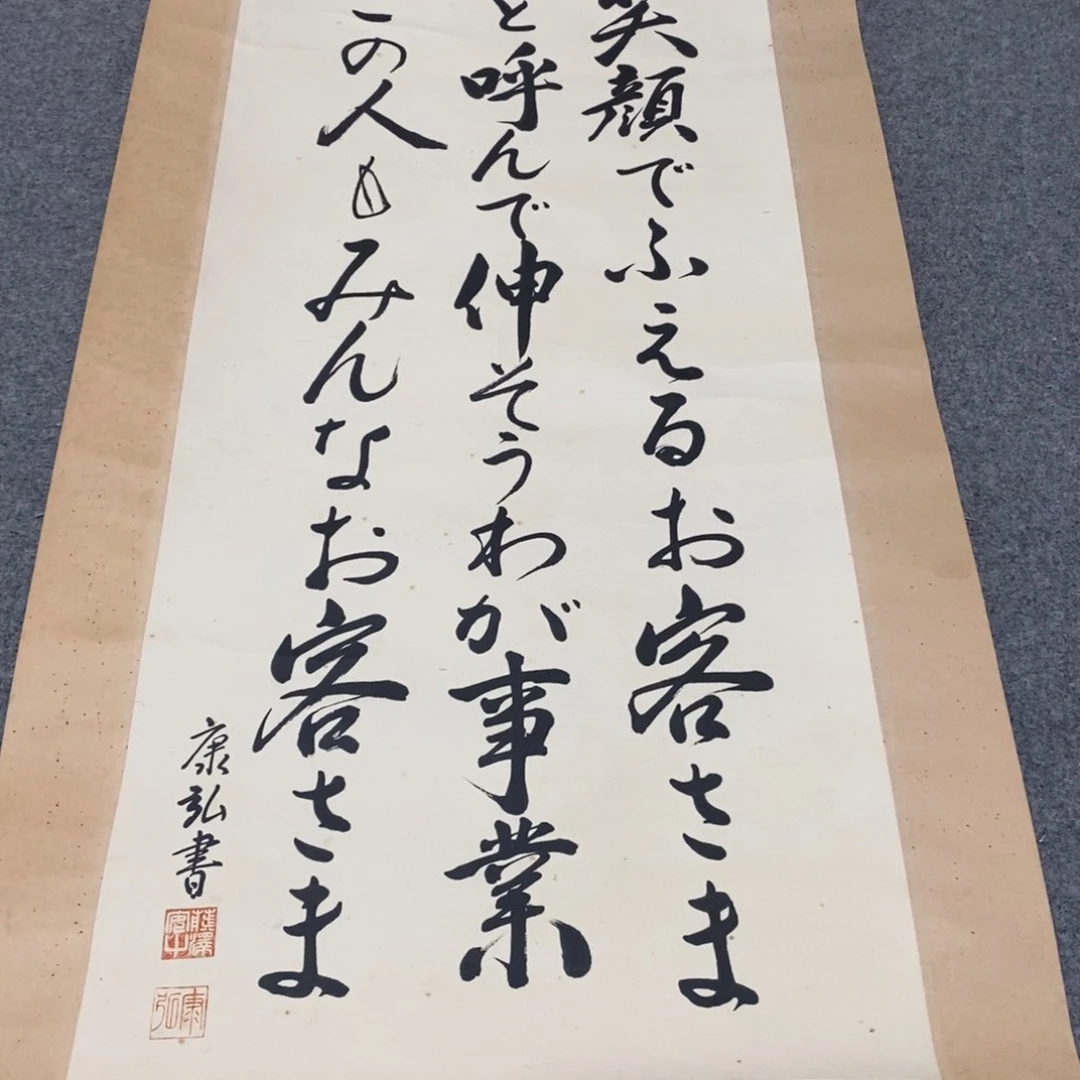 笑顔でふえるお客さま
と呼んで伸そうわが事業
この人もみんなお客さま
康弘書
康弘